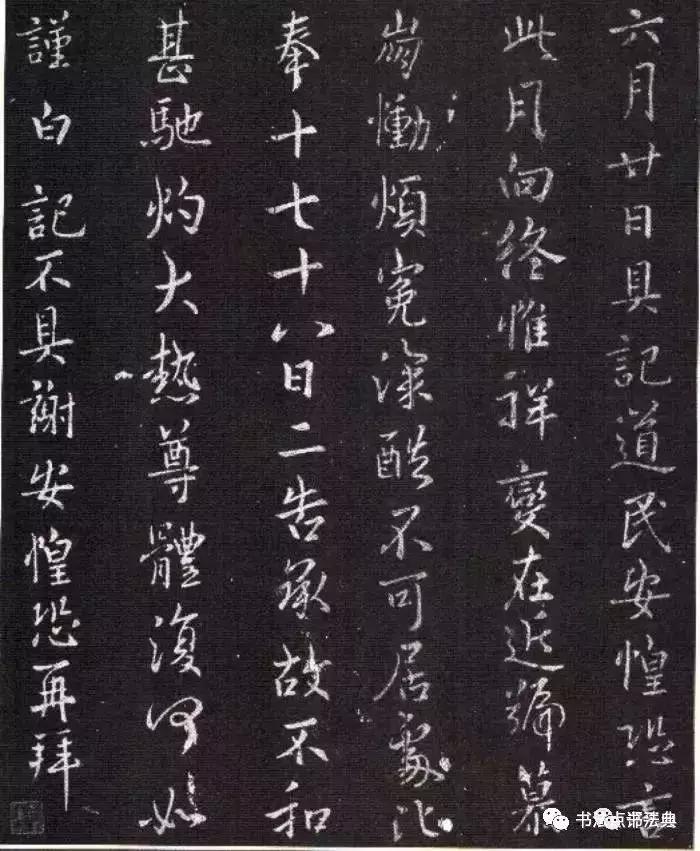 六月廿日具記道民安惶恐言
此月向終惟祥變在近號慕
崩慟煩冤深酷不可居處比
奉十七十八日二告承故不和
甚馳灼大熱尊體復何如
謹白記不具謝安惶恐再拜
书法点评法典